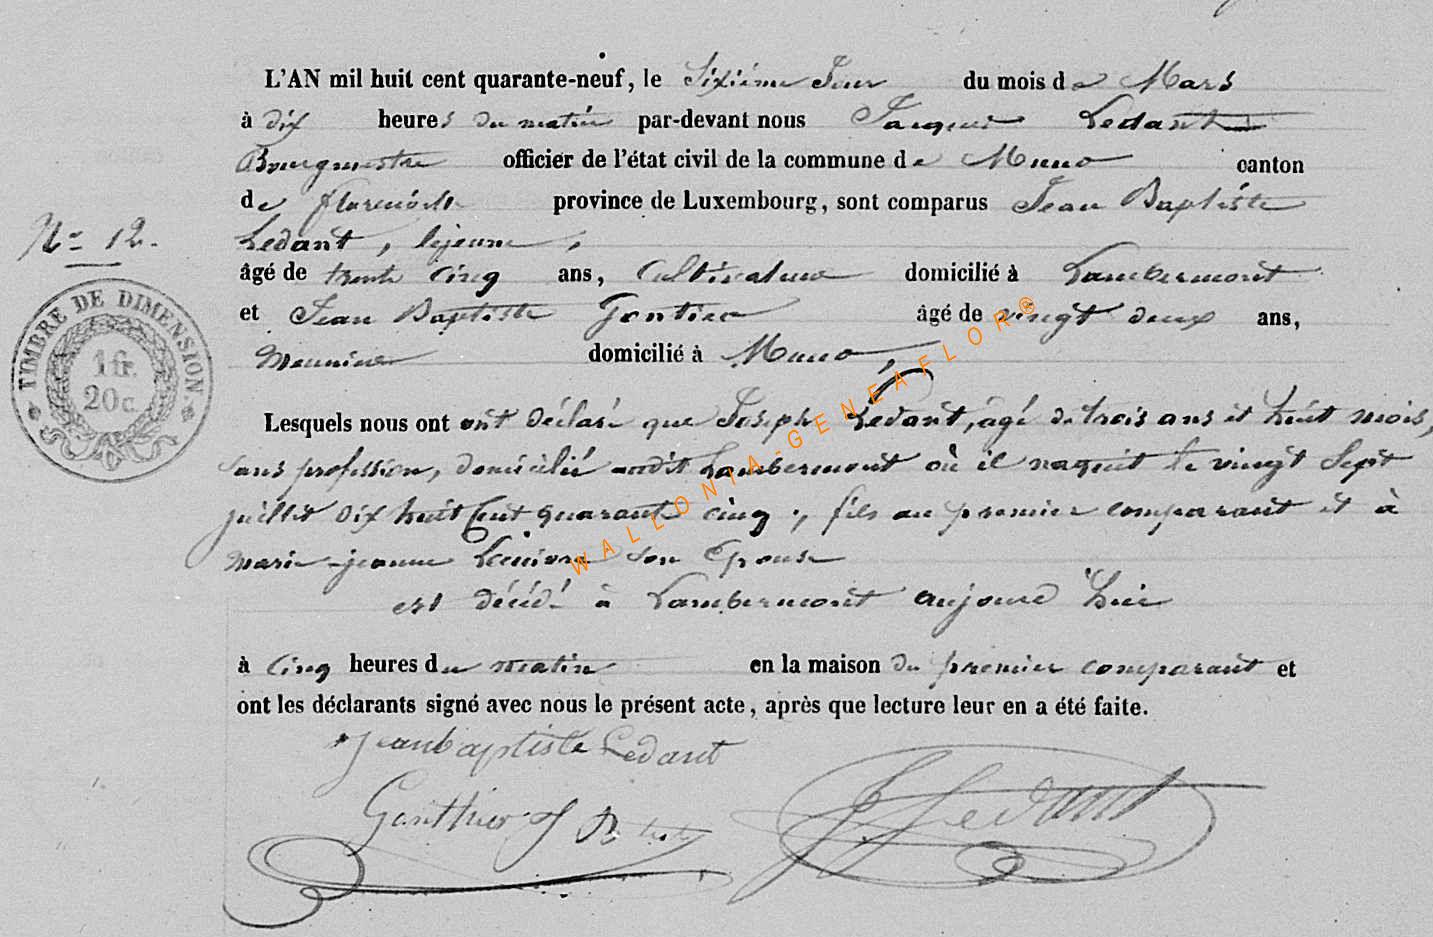 L'AN mil huit cent quarante-neuf, le Sixième Jour du mois de Mars
à dix heures du matin par-devant nous Jacques Ledant
Bourgmestre officier de l'état civil de la commune de Muno canton
de florenville province de Luxembourg, sont comparus Jean Baptiste
Ledant, lejeune,
N° 12.
âgé de trente cinq ans, Cultivateur domicilié à Lambermont
et Jean Baptiste Gontier âgé de vingt deux ans,
Meunier domicilié à Muno,
TIMBRE DE DIMENSION.
1 fr.
20 c.
Lesquels nous ont ont déclaré que Joseph Ledant, âgé de trois ans et huit mois,
sans profession, domicilié audit Lambermont où il naquit le vingt Sept
juillet dix huit Cent quarante cinq, fils au premier comparant et à
marie-jeanne son Epouse
est décédé à Lambermont aujourd'huie
à Cinq heures du matin en la maison du premier comparant et
ont les déclarants signé avec nous le présent acte, après que lecture leur en a été faite.
jeanbaptiste Ledant
Gonthier J Bte
J Ledant
WALLONIA-GENEAFLOR®